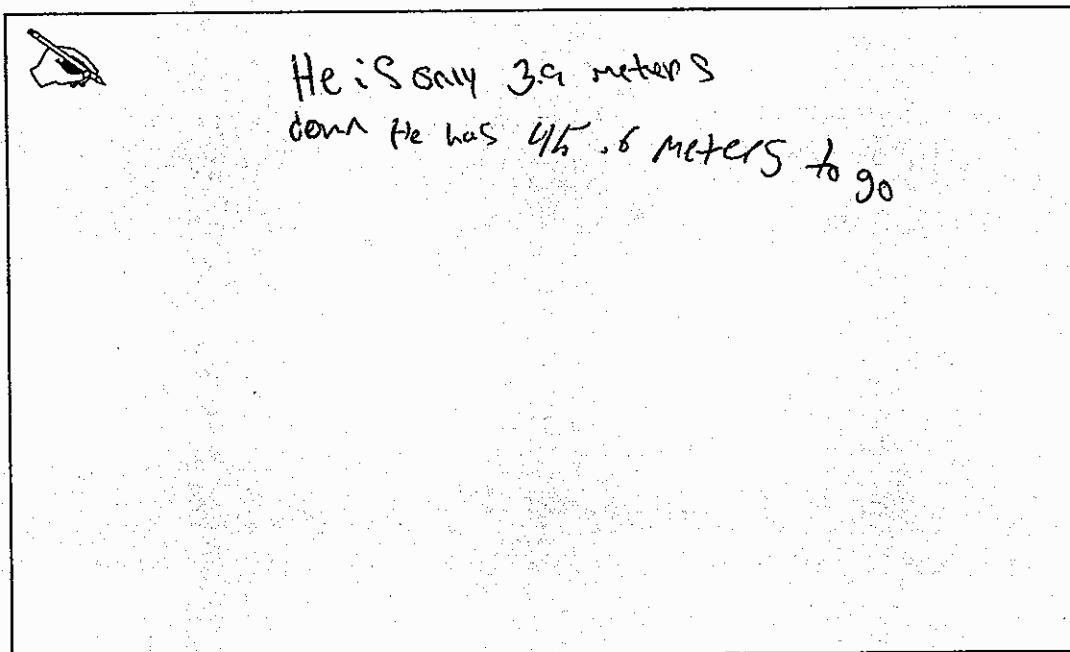 He is only 3.9 meters
down He has 45.6 meters to go